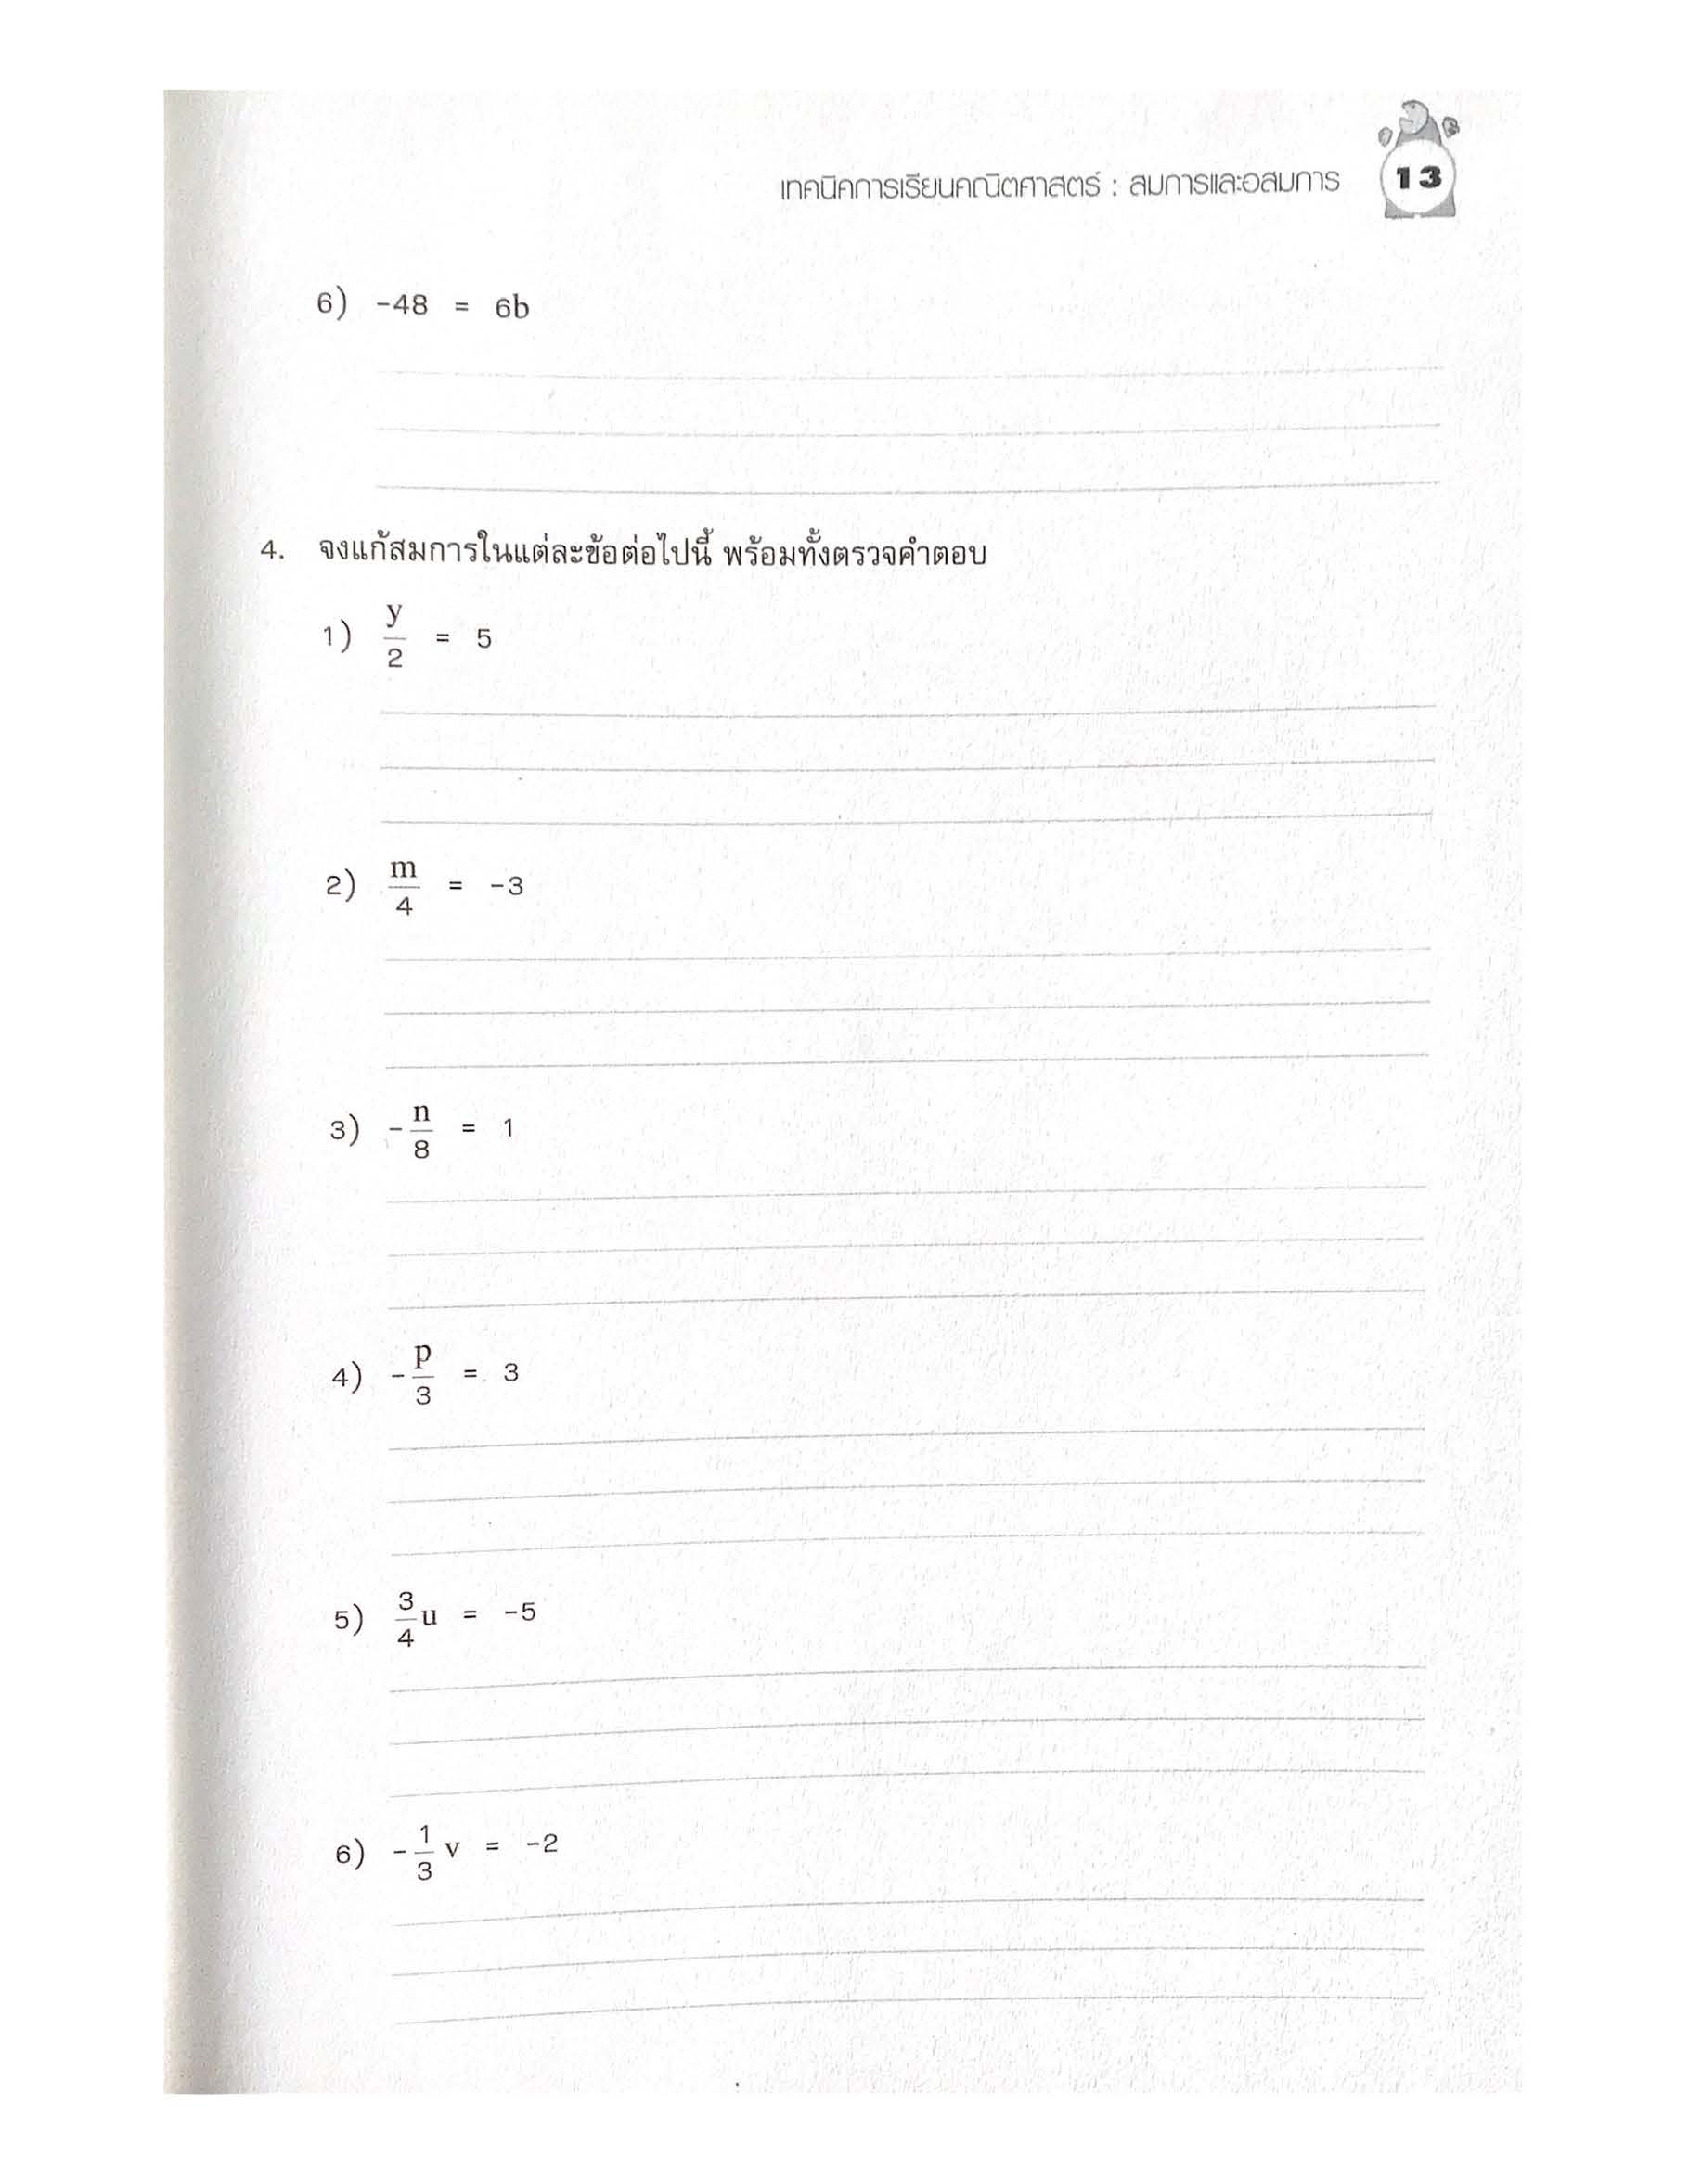 เทคนิคการเรียนคณิตศาสตร์ : สมการและอสมการ 13
6) -48 = 6b
4. จงแก้สมการในแต่ละข้อต่อไปนี้ พร้อมทั้งตรวจคำตอบ
1) y/2 = 5
2) m/4 = -3
3) -n/8 = 1
4) -p/3 = 3
5) 3/4 u = -5
6) -1/3 v = -2